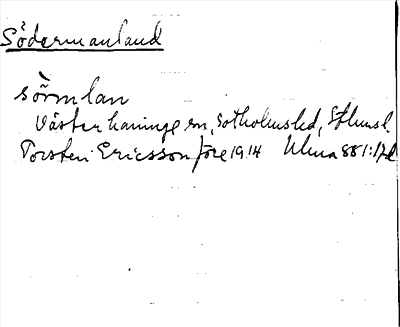 Södermanland
sörmlan
Västerhaninge sn, Sotholms hd, Sthms l.
Torsten Ericsson före 1914 Ulma 881:17d